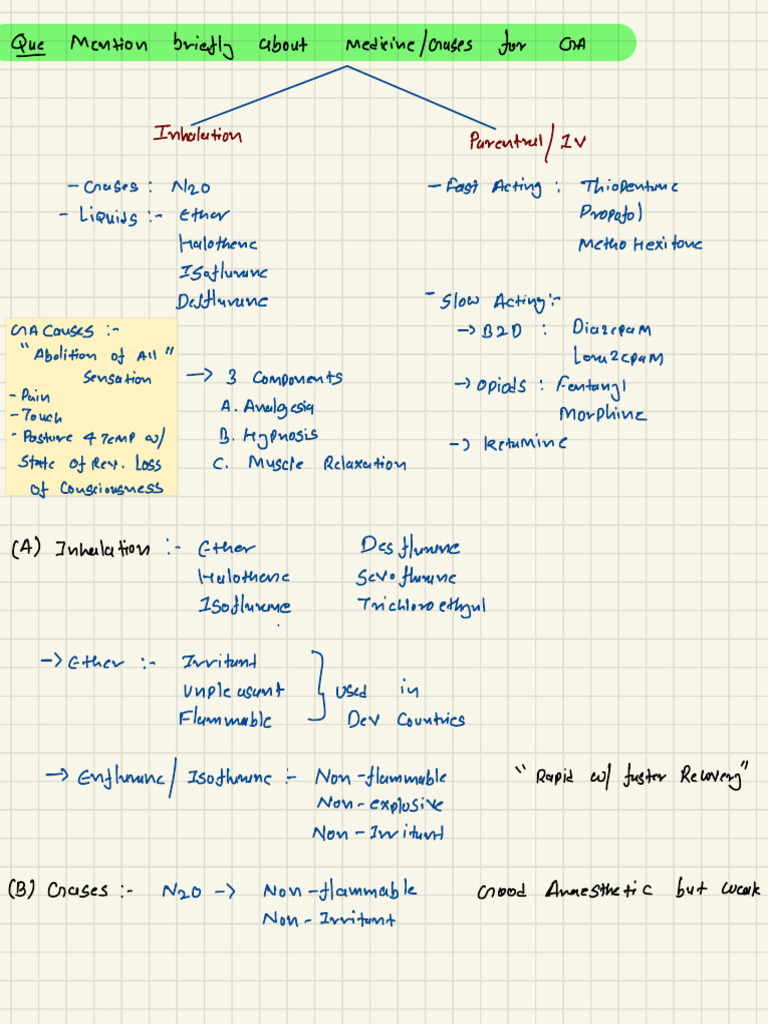 Que Mention briefly about Medicine/Gases for GA
Inhalation
Parentral/IV
- Gases : N2O
- Liquids :- Ether
Halothene
Isoflurane
Desflurane
- Fast Acting : Thiopentone
Propafol
Metho Hexitone
- Slow Acting :-
-> BZD : Diazepam
Lorazepam
-> Opiods : Fentanyl
Morphine
-> Ketamine
GA Causes :-
"Abolition of All"
Sensation
- Pain
- Touch
- Posture & Temp w/
State of Rev. Loss
of Consciousness
-> 3 Components
A. Analgesia
B. Hypnosis
C. Muscle Relaxation
(A) Inhalation :- Ether Desflurane
Halothene Sevoflurane
Isoflurane Trichloroethyl
-> Ether :- Irritant
Unpleasant
Flammable
used in
Dev Countries
-> Enflurane/Isoflurane :- Non-flammable "Rapid w/ faster Recovery"
Non-explosive
Non-Irritant
(B) Gases :- N2O -> Non-flammable Good Anaesthetic but weak
Non-Irritant